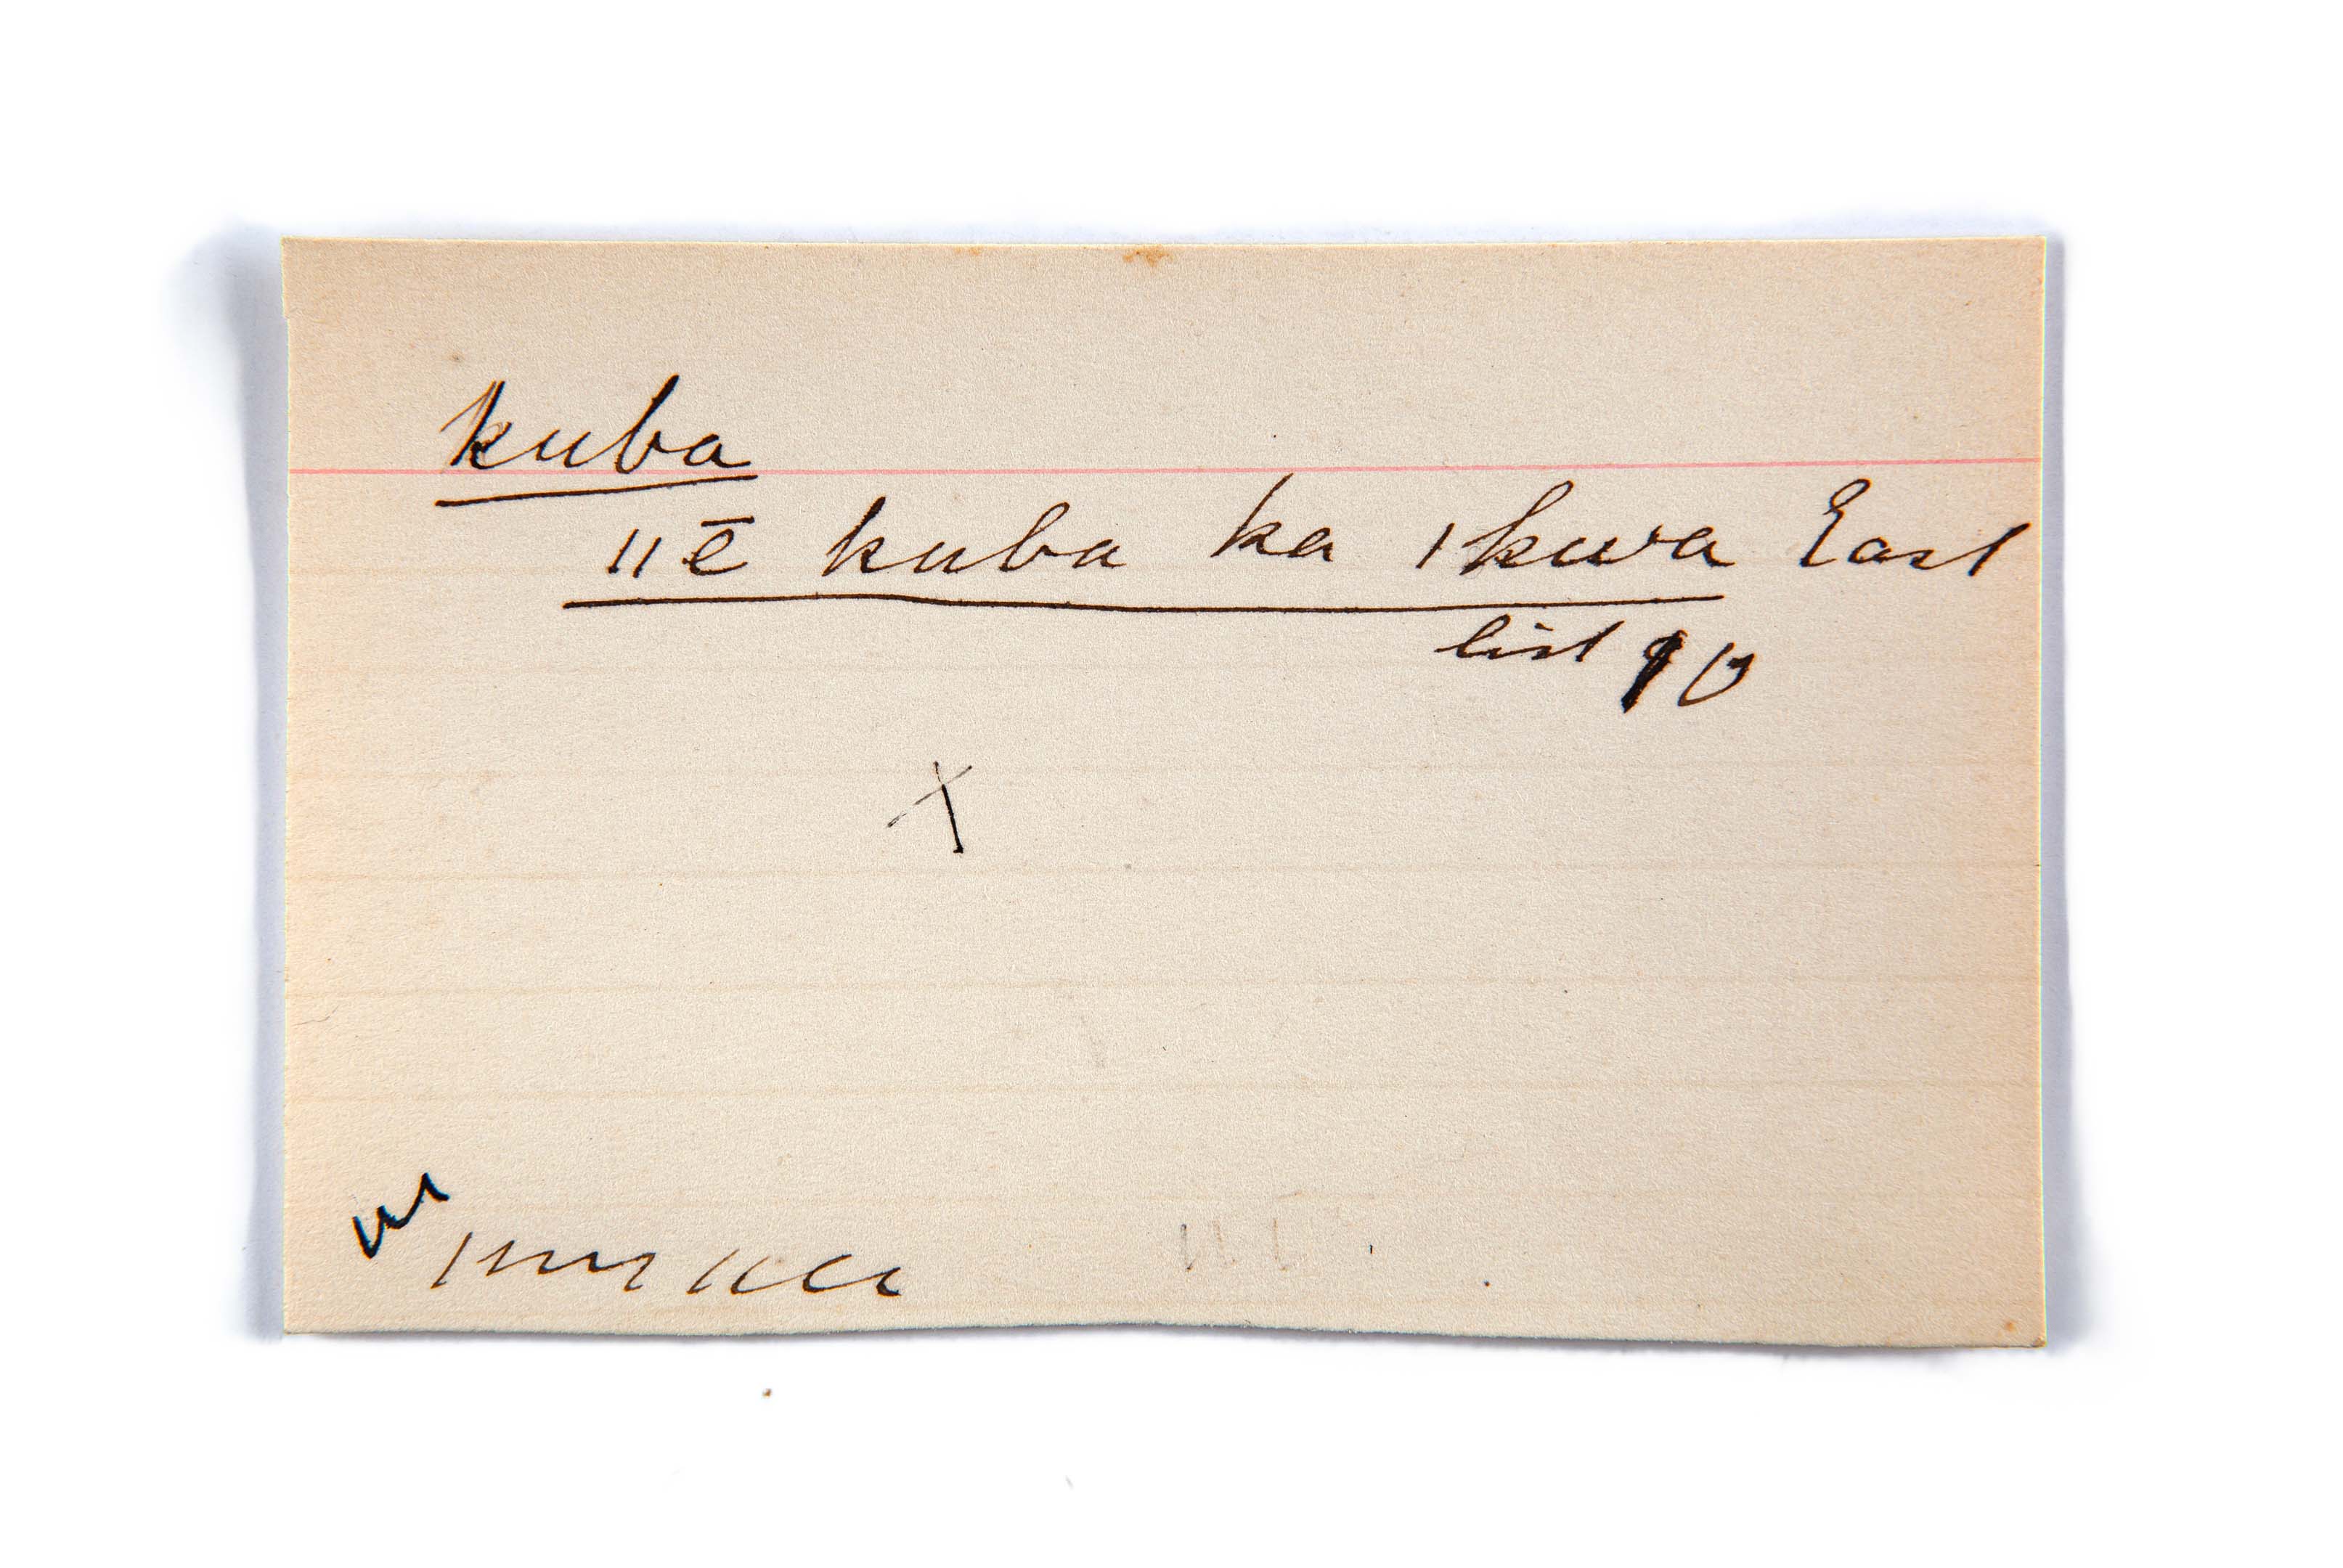 kuba
ǁē kuba ka ǀkwa East
list 10
X